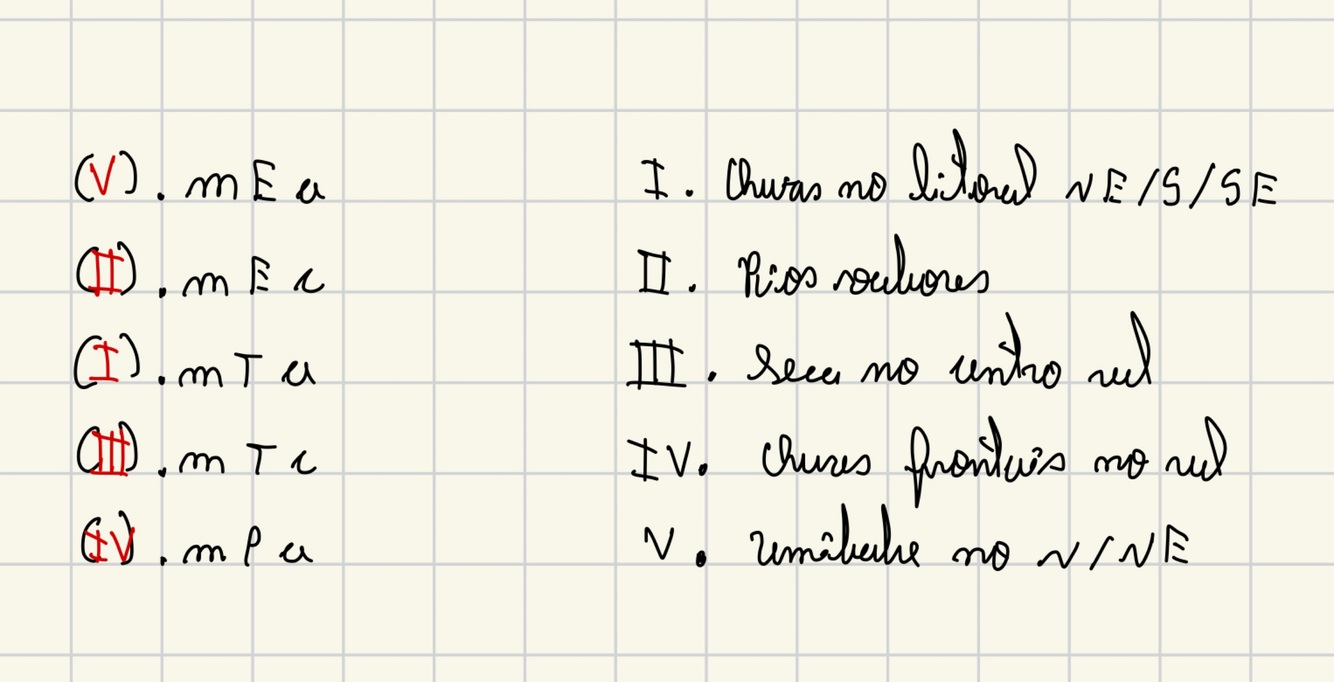 (V). mEa I. Chuvas no litoral NE/S/SE
(II). mEc II. Rios voadores
(I). mTa III. Seca no centro sul
(III). mTc IV. Chuvas frontais no sul
(IV). mPa V. no N/NE